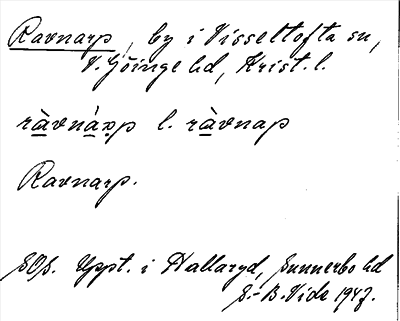 Ravnarp, by i Visseltofta sn,
V. Göinge hd, Krist. l.
ràvnàrp l. ràvnap
Ravnarp.
SOS. Uppt. i Hallaryd, Sunnerbo hd
S.-B. Vide 1947.